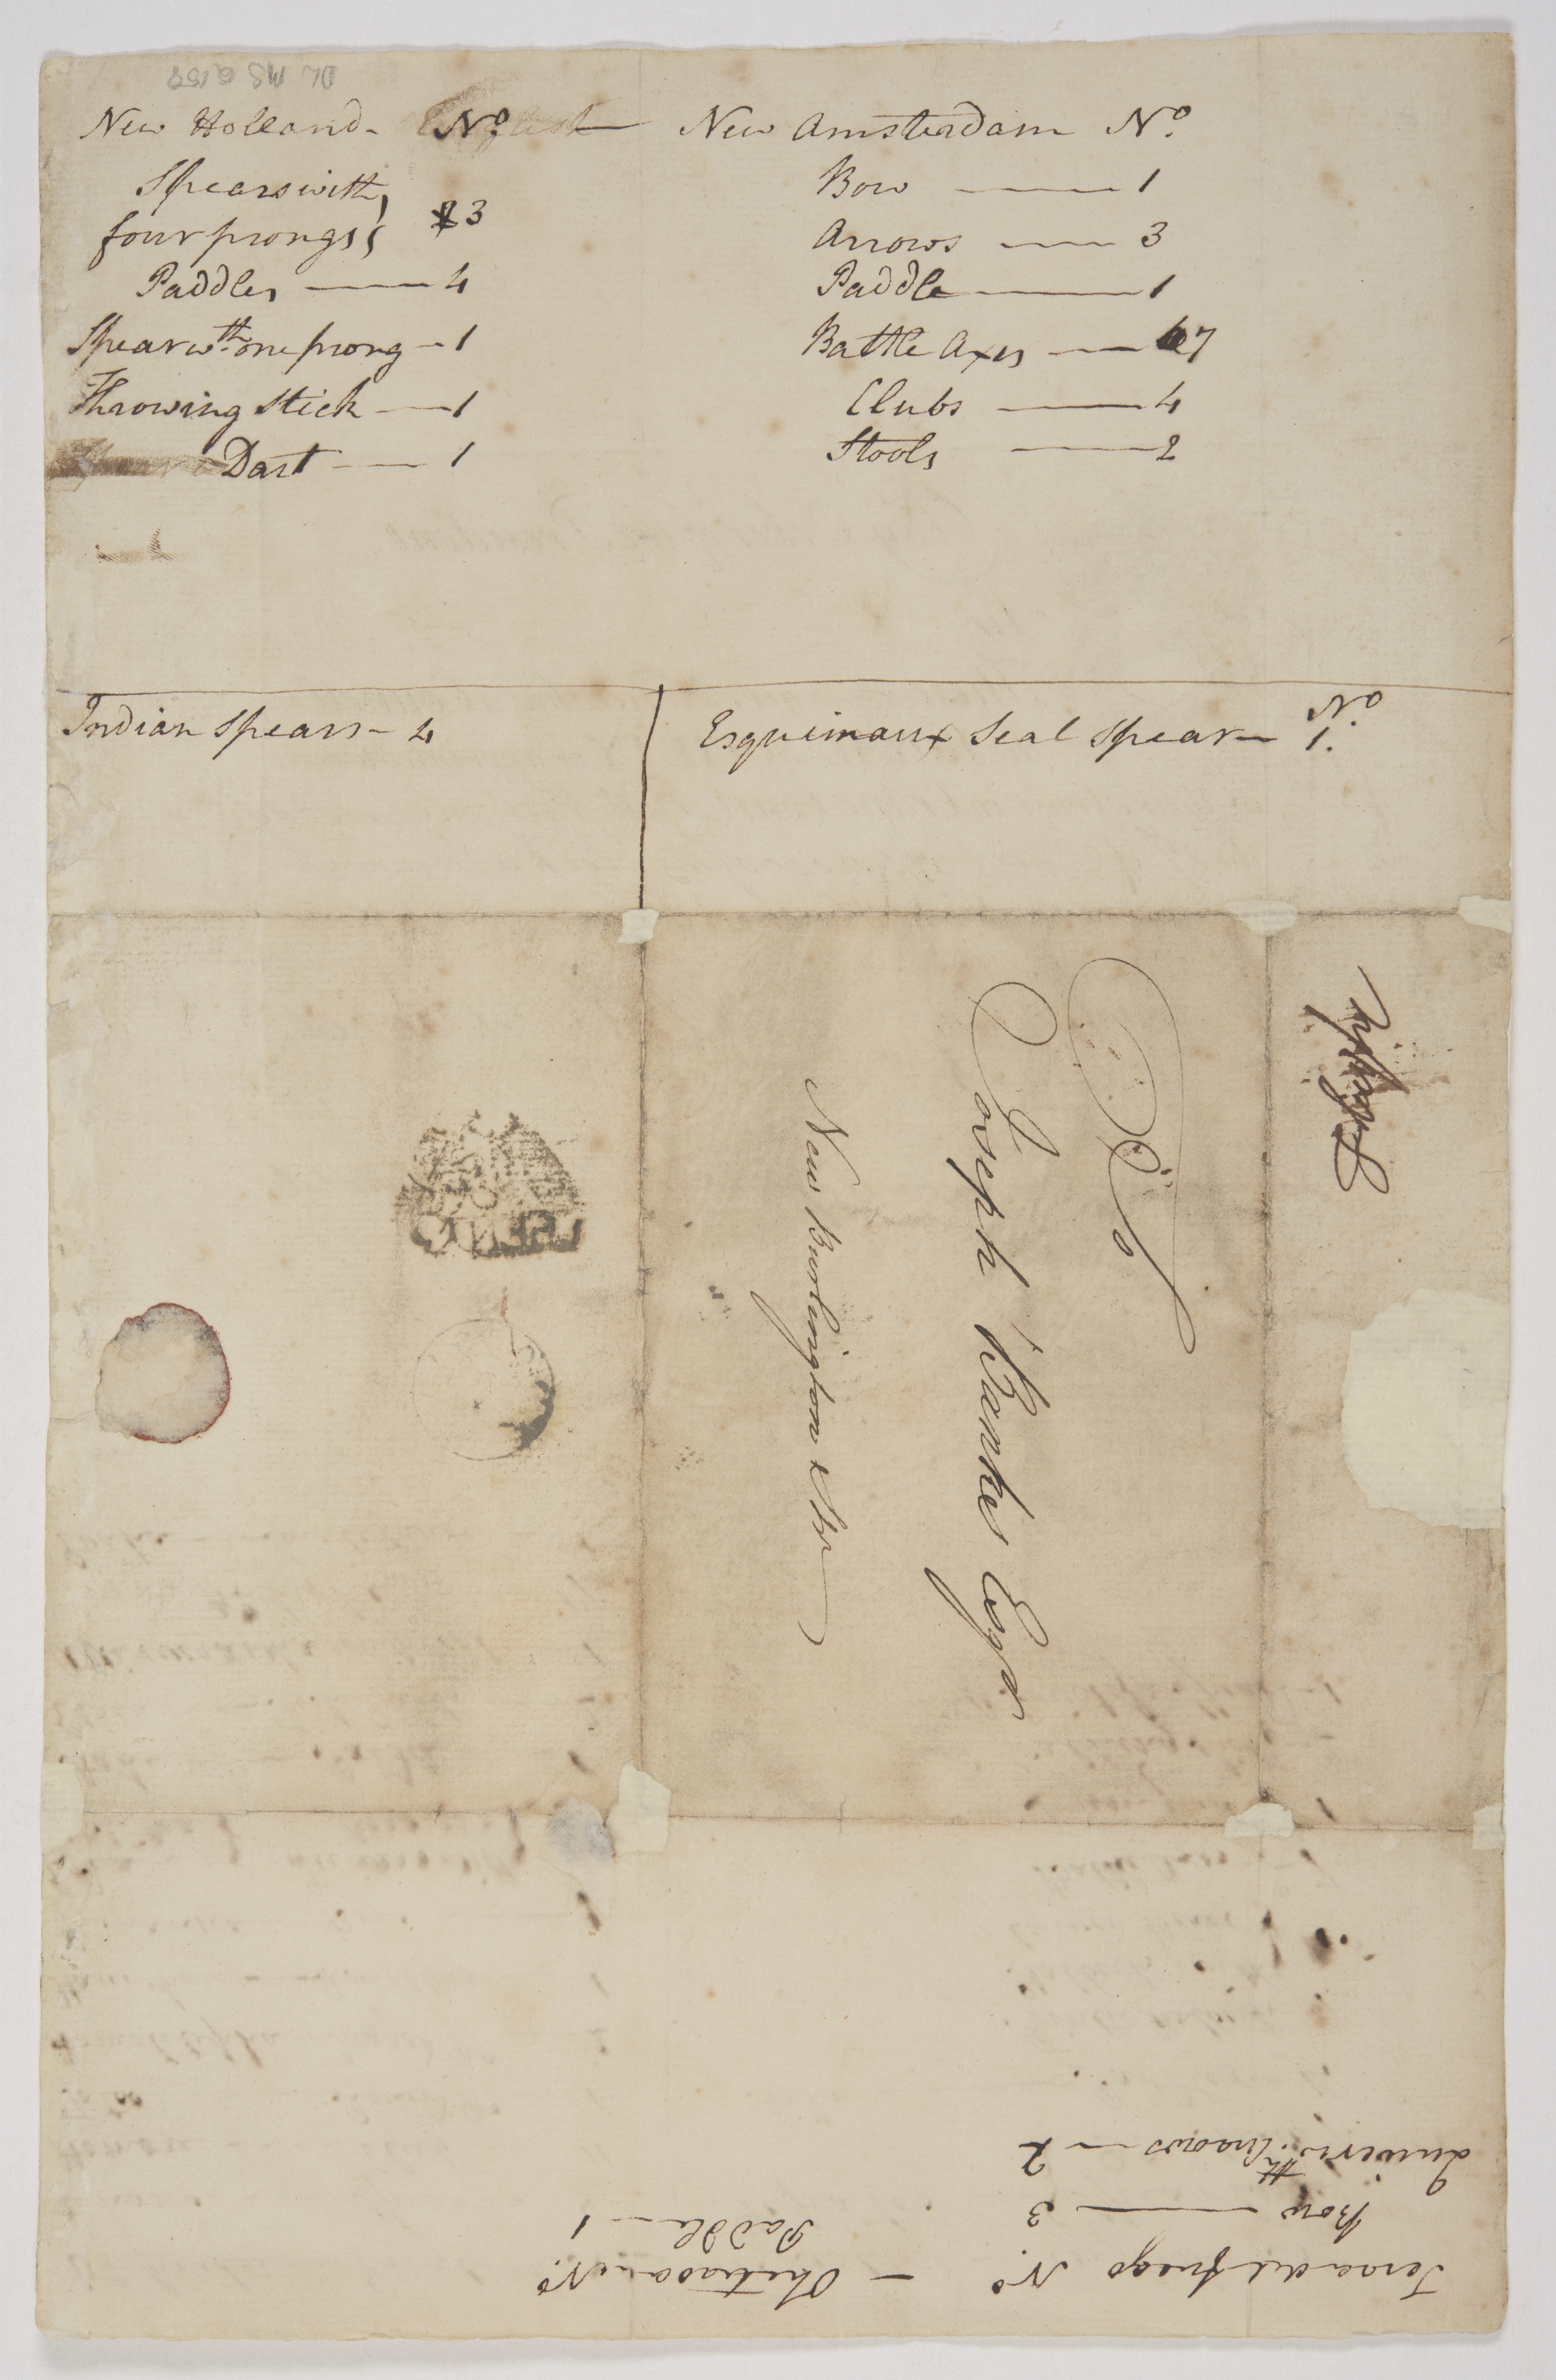 DL MS Q158
New Holland - No.
Spears with
four prongs 3
Paddles — 4
Spear wth. one prong - 1
Throwing Stick — 1
Dart — 1
New Amsterdam No.
Bow — 1
Arrows — 3
Paddle — 1
Battle Axes — 7
Clubs — 4
Stools — 2
Indian Spears - 4
Esquimaux Seal Spear - No. 1.
Joseph Banks Esqr
New Burlington Str
Teraadelfuego No.
Bow — 3
Quiver wth. Arrows — 2
— No.
Paddle — 1